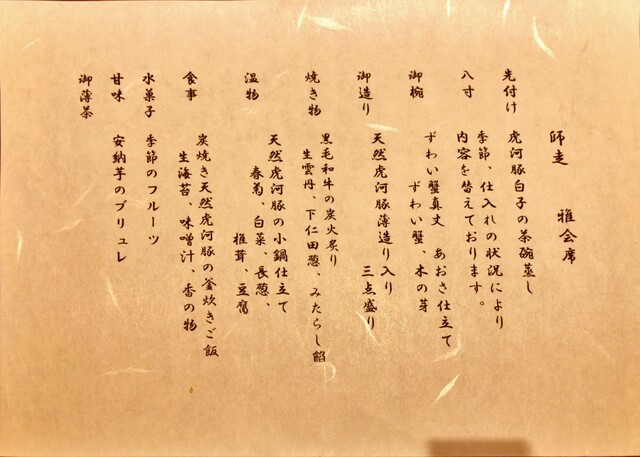 師走　雅会席
先付け　虎河豚白子の茶碗蒸し
八寸　季節、仕入れの状況により
内容を替えております。
御椀　ずわい蟹真丈　あおさ仕立て
ずわい蟹、木の芽
御造り　天然虎河豚薄造り入り
三点盛り
焼き物　黒毛和牛の炭火炙り
生雲丹、下仁田葱、みたらし餡
温物　天然虎河豚の小鍋仕立て
春菊、白菜、長葱、
椎茸、豆腐
食事　炭焼き天然虎河豚の釜炊きご飯
生海苔、味噌汁、香の物
水菓子　季節のフルーツ
甘味　安納芋のブリュレ
御薄茶